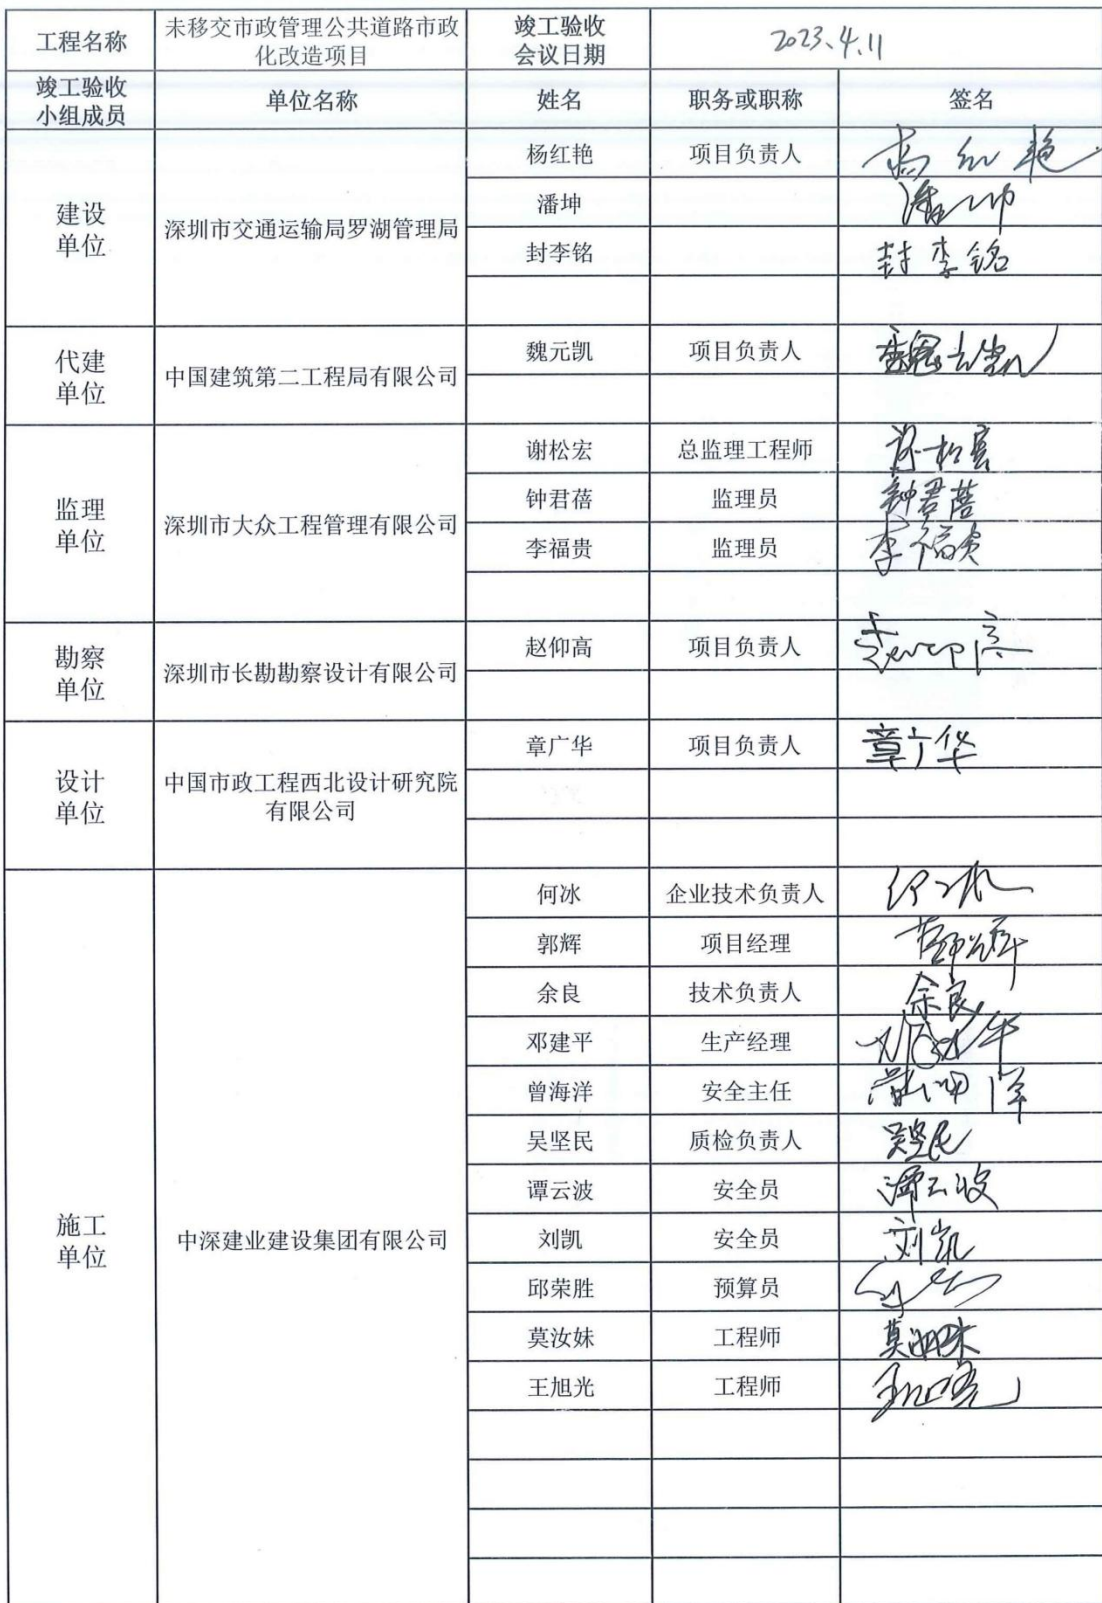 工程名称
未移交市政管理公共道路市政
化改造项目
竣工验收
会议日期
2023.4.11
竣工验收
小组成员
单位名称
姓名
职务或职称
签名
建设
单位
深圳市交通运输局罗湖管理局
杨红艳
项目负责人
杨红艳
潘坤
潘坤
封李铭
封李铭
代建
单位
中国建筑第二工程局有限公司
魏元凯
项目负责人
魏元凯
监理
单位
深圳市大众工程管理有限公司
谢松宏
总监理工程师
谢松宏
钟君蓓
监理员
钟君蓓
李福贵
监理员
李福贵
勘察
单位
深圳市长勘勘察设计有限公司
赵仰高
项目负责人
赵仰高
设计
单位
中国市政工程西北设计研究院
有限公司
章广华
项目负责人
章广华
施工
单位
中深建业建设集团有限公司
何冰
企业技术负责人
何冰
郭辉
项目经理
郭辉
余良
技术负责人
余良
邓建平
生产经理
邓建平
曾海洋
安全主任
曾海洋
吴坚民
质检负责人
吴坚民
谭云波
安全员
谭云波
刘凯
安全员
刘凯
邱荣胜
预算员
莫汝妹
工程师
莫汝妹
王旭光
工程师
王旭光